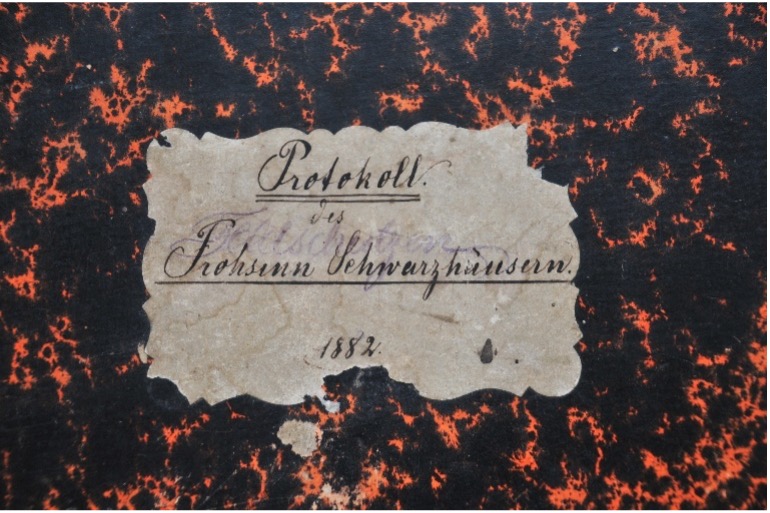 Protokoll.
des
Frohsinn Schwarzhäusern.
1882.